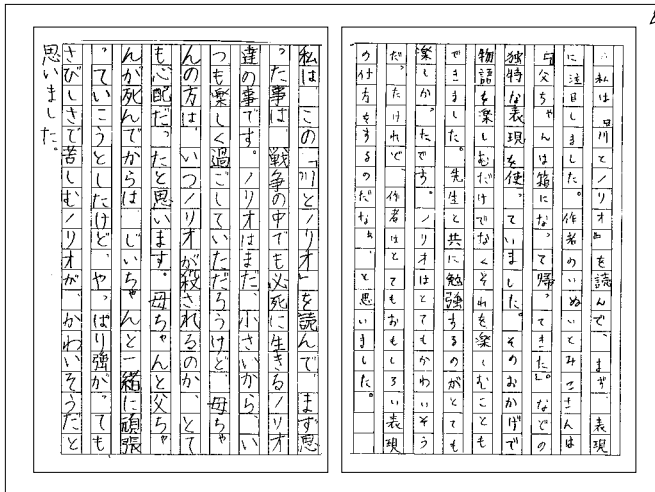 私は「川とノリオ」を読んで、まず、表現
に注目しました。作者のいぬいとみこさんは
「父ちゃんは箱になって帰ってきた」。などの
独特な表現を使っていました。そのおかげで
物語を楽しむだけでなくそれを楽しむことも
できました。先生と共に勉強するのがとても
楽しかったです。ノリオはとてもかわいそう
だ。だけれど、作者はとてもおもしろい表現
の仕方をするのだな。と思いました。
私は、この「川とノリオ」を読んで、まず思
った事は、戦争の中でも必死に生きるノリオ
達の事です。ノリオはまだ、小さいから、い
つも楽しく過ごしていただろうけど、母ちゃ
んの方は、いつノリオが殺されるのか、とて
も心配だったと思います。母ちゃんと父ちゃ
んが死んでからは、じいちゃんと一緒に頑張
っていこうとしたけど、やっぱり強がっても
さびしさで苦しむノリオが、かわいそうだと
思いました。